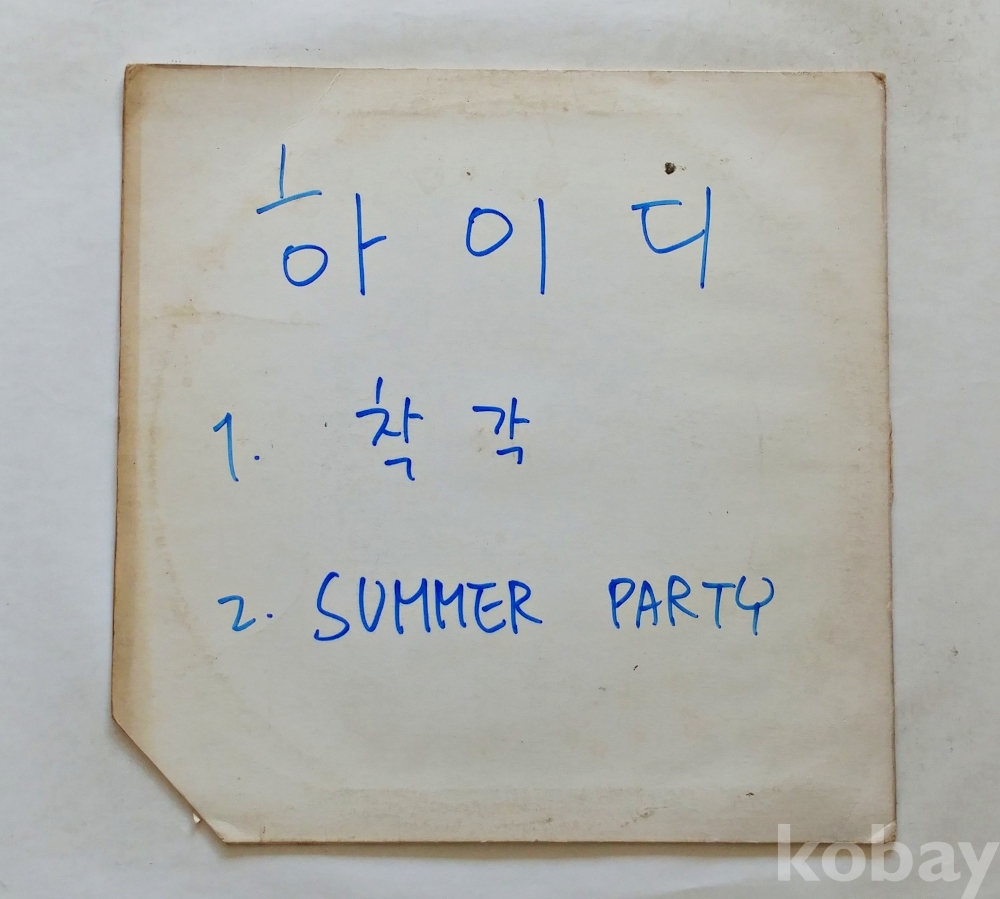 하이디
1. 착각
2. SUMMER PARTY
kobay